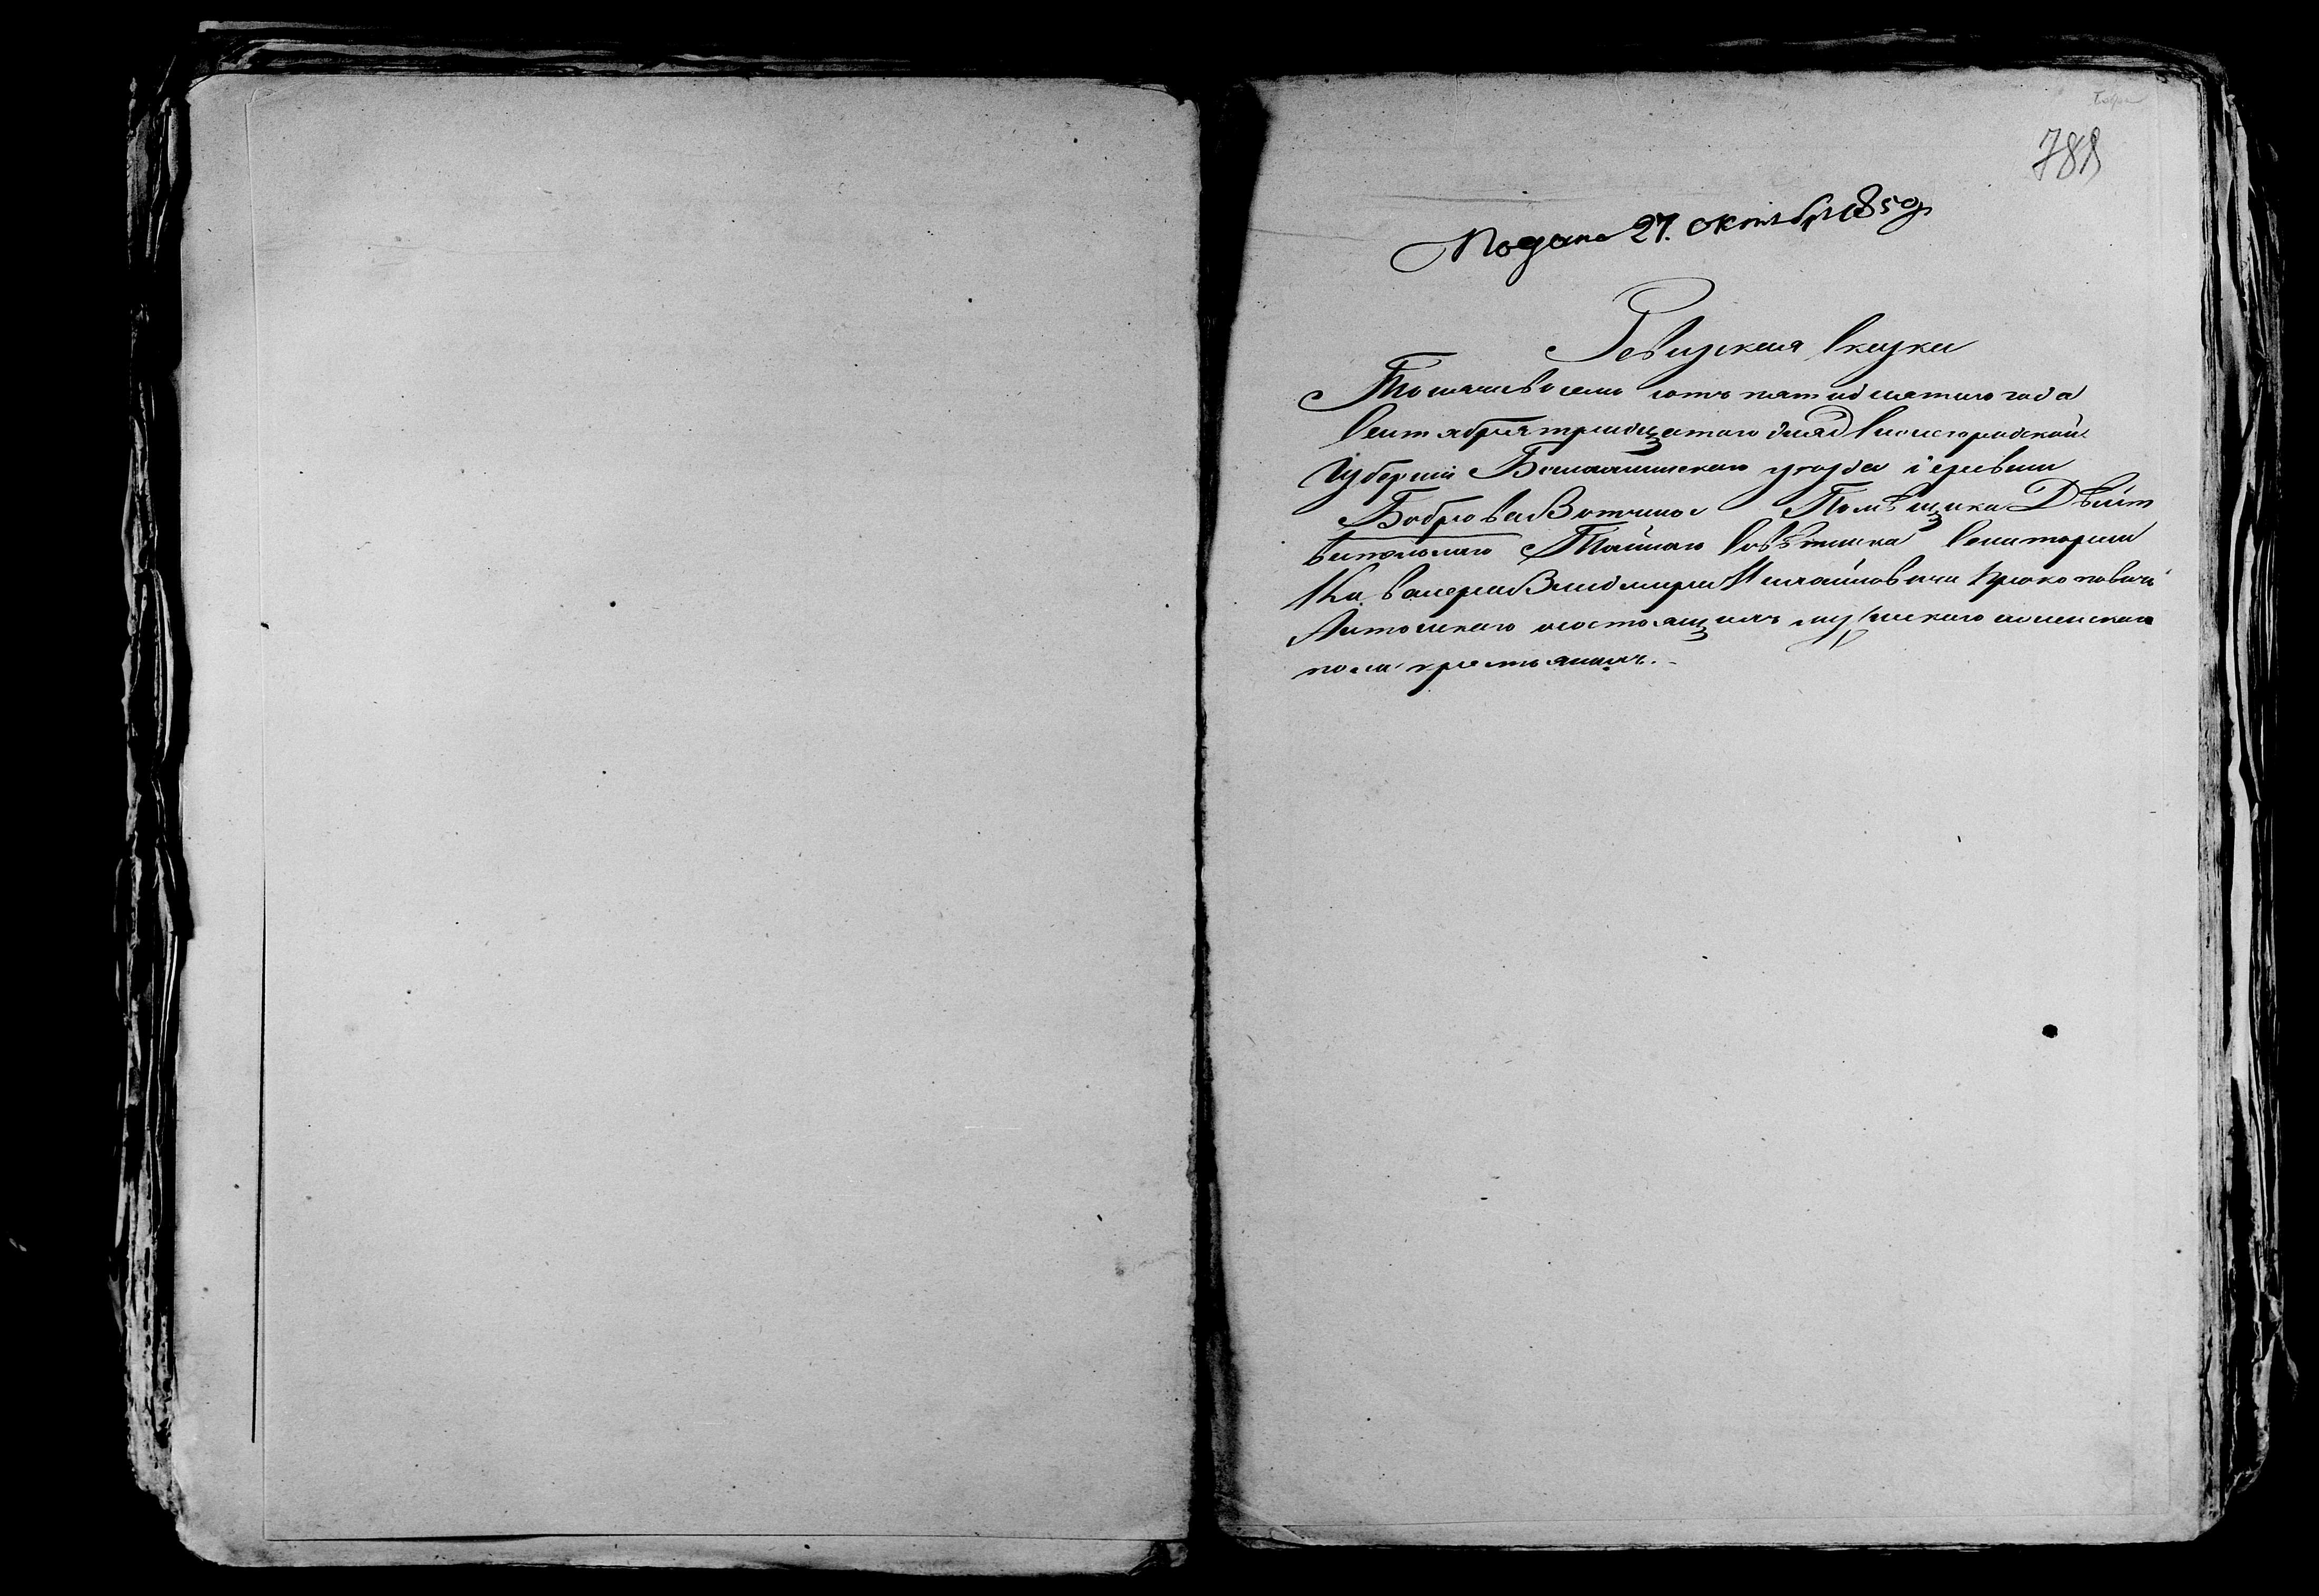 788
Подана 27. октября 1850 г.
Ревизская Сказка
Тысяча восемь сотъ пятидесятаго года
Сентября тридцатаго дня Нижегородской
Губерніи Балахнинскаго уезда деревни
Боброва Вотчина Помѣщика Дѣйст
вительнаго Тайнаго Совѣтника Сенатора и
Кавалера Владимира Михайловича Прокоповичь
Антонскаго о состоящихъ мужескаго и женскаго
пола крестьянахъ.